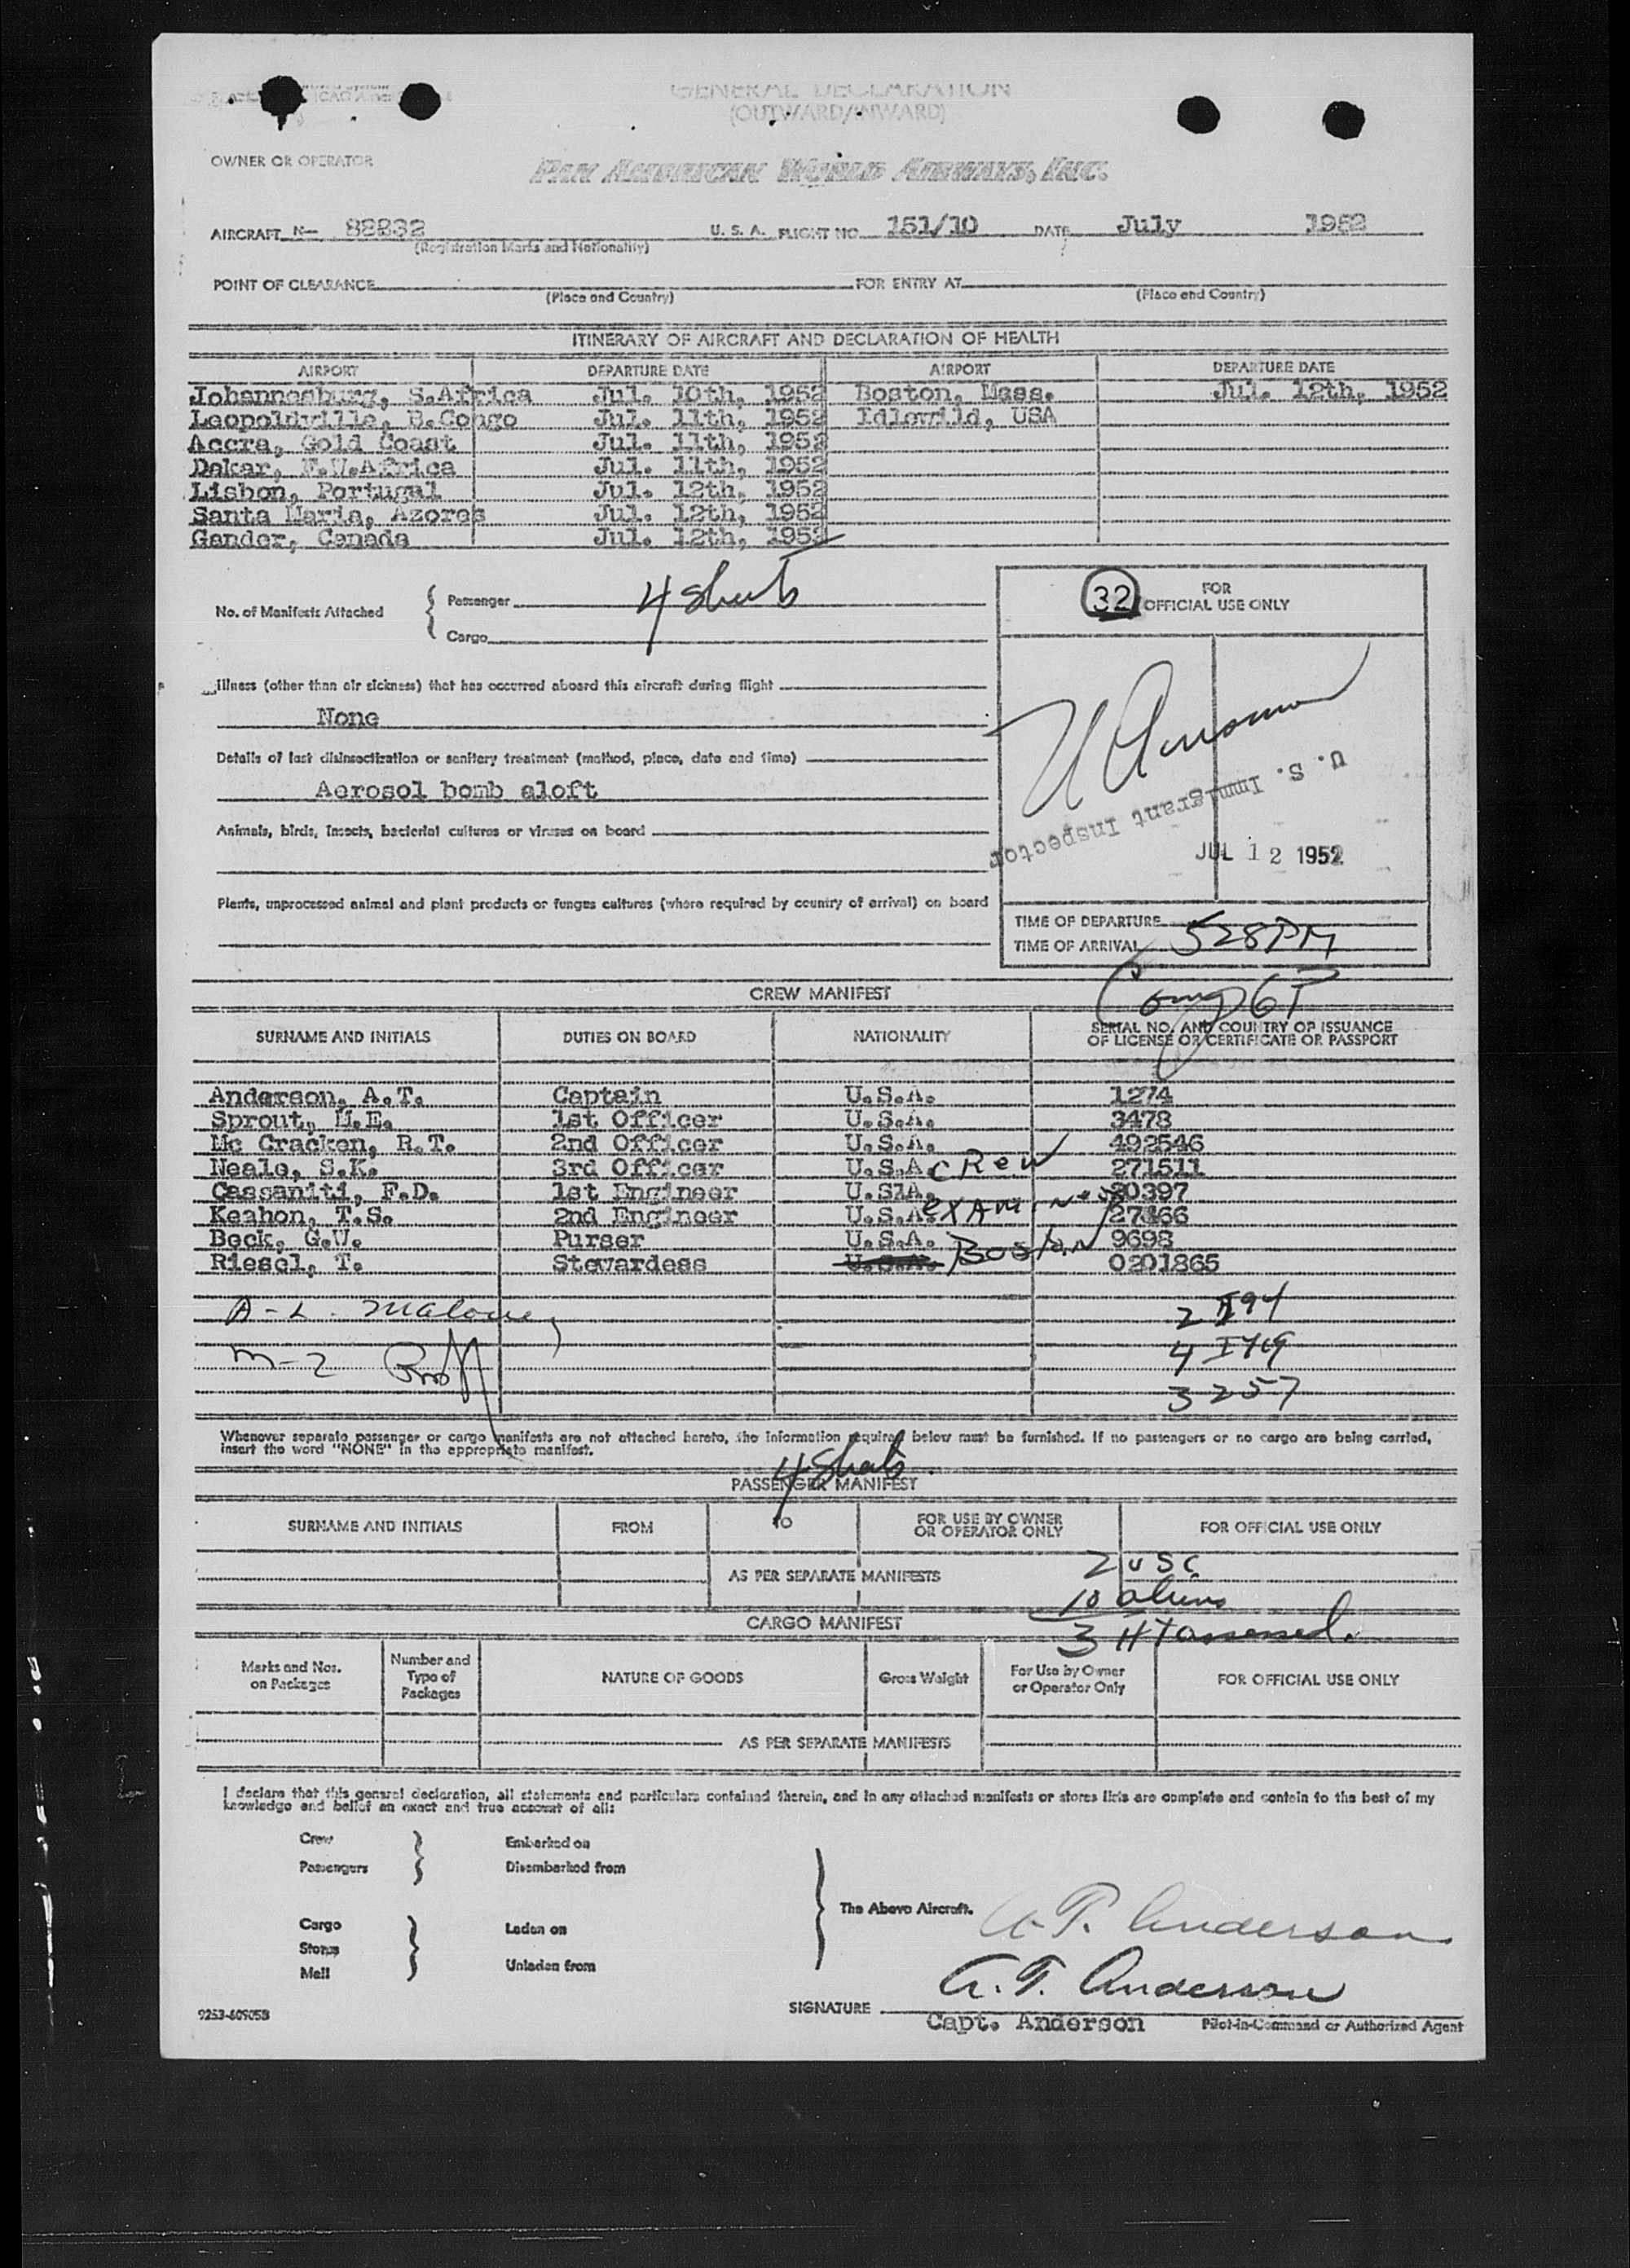 GENERAL DECLARATION
(OUTWARD/INWARD)
OWNER OR OPERATOR PAN AMERICAN WORLD AIRWAYS, INC.
AIRCRAFT N— U. S. A. FLIGHT NO. 151/10 DATE July 1952
(Registration Marks and Nationality)
POINT OF CLEARANCE FOR ENTRY AT
(Place and Country) (Place and Country)
ITINERARY OF AIRCRAFT AND DECLARATION OF HEALTH
AIRPORT DEPARTURE DATE AIRPORT DEPARTURE DATE
Johannesburg, S.Africa Jul. 10th, 1952 Boston, Mass. Jul. 12th, 1952
Leopoldville, B.Congo Jul. 11th, 1952 Idlewild, USA
Accra, Gold Coast Jul. 11th, 1952
Dakar, F.W.Africa Jul. 11th, 1952
Lisbon, Portugal Jul. 12th, 1952
Santa Maria, Azores Jul. 12th, 1952
Gander, Canada Jul. 12th, 1952
No. of Manifests Attached
Passenger 4 Sheets
Cargo
32 FOR
OFFICIAL USE ONLY
Illness (other than air sickness) that has occurred aboard this aircraft during flight
None
Details of last disinsectization or sanitary treatment (method, place, date and time)
Aerosol bomb aloft
U. S. Immigrant Inspector
Animals, birds, insects, bacterial cultures or viruses on board
JUL 12 1952
Plants, unprocessed animal and plant products or fungus cultures (where required by country of arrival) on board
TIME OF DEPARTURE
TIME OF ARRIVAL 528 PM
CREW MANIFEST
SURNAME AND INITIALS DUTIES ON BOARD NATIONALITY SERIAL NO. AND COUNTRY OF ISSUANCE
OF LICENSE OR CERTIFICATE OR PASSPORT
Anderson, A.T. Captain U.S.A. 1274
Sprout, H.E. 1st Officer U.S.A. 3478
Mc Cracken, R.T. 2nd Officer U.S.A. 492546
Neale, S.K. 3rd Officer U.S.A. crew 271511
Cassaniti, F.D. 1st Engineer U.S.A. 20397
Keahon, T.S. 2nd Engineer U.S.A. examined
Beck, G.W. Purser U.S.A. Boston 9698
Riesel, T. Stewardess U.S.A. 0201865
A-2 Malone
M-2
3257
Whenever separate passenger or cargo manifests are not attached hereto, the information required below must be furnished. If no passengers or no cargo are being carried,
insert the word "NONE" in the appropriate manifest.
4 Sheets
PASSENGER MANIFEST
SURNAME AND INITIALS FROM TO FOR USE BY OWNER
OR OPERATOR ONLY FOR OFFICIAL USE ONLY
2 USC
AS PER SEPARATE MANIFESTS
10 aliens
CARGO MANIFEST
3 HT assessed.
Marks and Nos.
on Packages Number and
Type of
Packages NATURE OF GOODS Gross Weight For Use by Owner
or Operator Only FOR OFFICIAL USE ONLY
AS PER SEPARATE MANIFESTS
I declare that this general declaration, all statements and particulars contained therein, and in any attached manifests or stores lists are complete and contain to the best of my
knowledge and belief an exact and true account of all:
Crew Embarked on
Passengers Disembarked from
The Above Aircraft. A. T. Anderson
Cargo Laden on
Stores
Mail Unladen from
A. T. Anderson
SIGNATURE
Capt. Anderson Pilot-in-Command or Authorized Agent